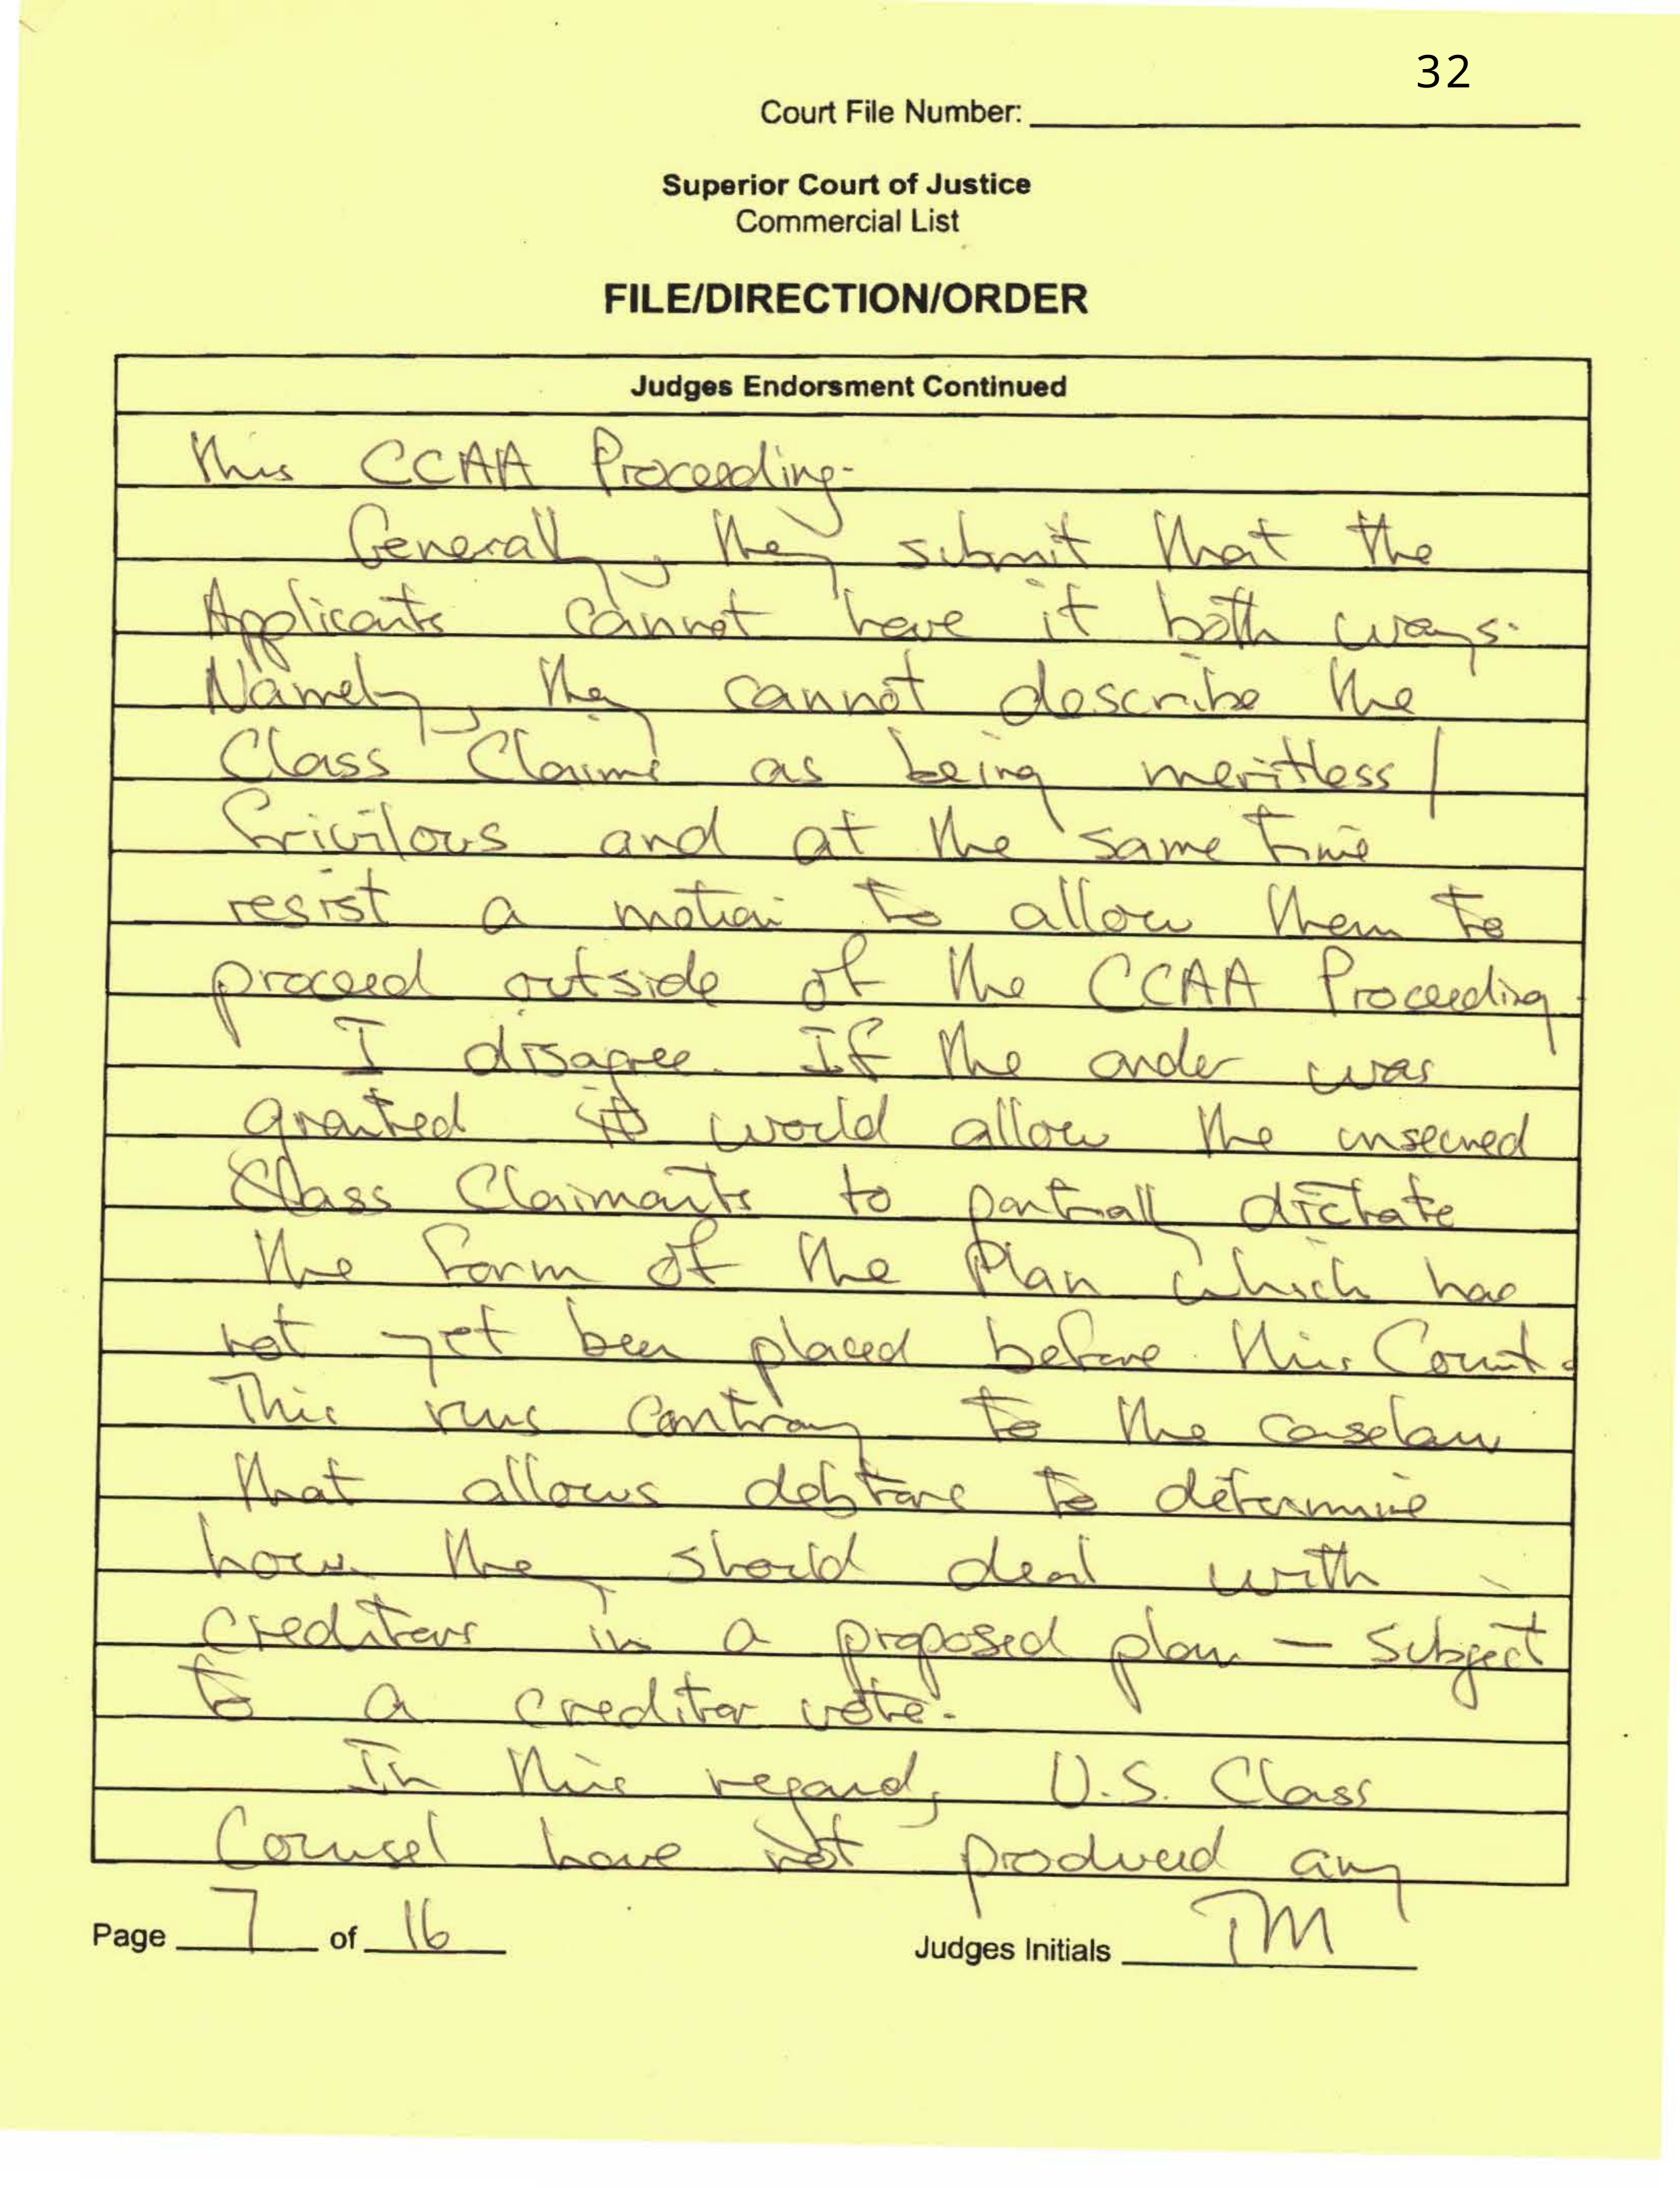 32
Court File Number:
Superior Court of Justice
Commercial List
FILE/DIRECTION/ORDER
Judges Endorsment Continued
this CCAA Proceeding.
Generally, they submit that the
Applicants cannot have it both ways.
Namely, they cannot describe the
Class Claims as being meritless/
frivilous and at the same time
resist a motion to allow them to
proceed outside of the CCAA Proceeding.
I disagree. If the order was
granted it would allow the unsecured
Class Claimants to partially dictate
the form of the Plan which has
not yet been placed before this Court.
This runs contrary to the caselaw
that allows debtors to determine
how they should deal with
creditors in a proposed plan — subject
to a creditor vote.
In this regard, U.S. Class
Counsel have not produced any
Page 7 of 16
Judges Initials TM